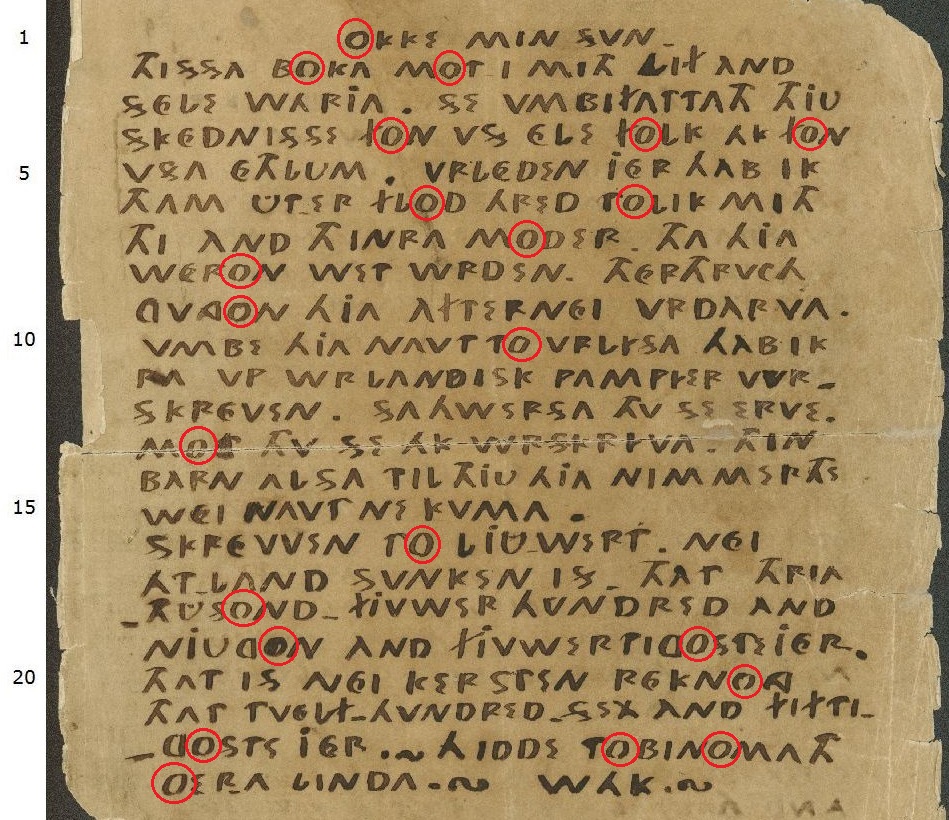 1 OKKE MIN SVN.
THISSA BOKA MOT I MITH LIF AND
SELE WARIA. SE VMBIFATTATH THIU
SKEDNISSE FON VS ELE FOLK AK FON
5 VSA ETHLUM. VRLEDEN IER HAB IK
THAM UT.ER FLOD HRED TOLIK MITH
THI AND THINRA MODER. THA HIA
WERON WET WRDEN. THERTHRVCH
GVNGON HIA AFTERNEI VRDARVA.
10 VMBE HIA NAVT TO VRLYSA HAB IK
RA VP WRLANDISK PAMPYER WR-
SKREVEN. SAHWERSA THV SE ERVE.
MOT THV SE AK WRSKRIVA. THIN
BARN ALSA TIL THIU HIA NIMMERTHE
15 WEI NAVT NE KVMA.
SKREVEN TO LIUWERT. NEI
AT-LAND SVNKEN IS- THAT THRIA
-THUSOND- FIVWER HVNDRED AND
NIUGON AND FIVWERTIGOSTE IER.
20 THAT IS NEI KERSTEN REKNONG
THAT TVELF-HVNDRED-SEX AND FIFTI-
-GOSTE IER.~ HIDDE TOBINOMATH
OERA LINDA.~ WAK.~